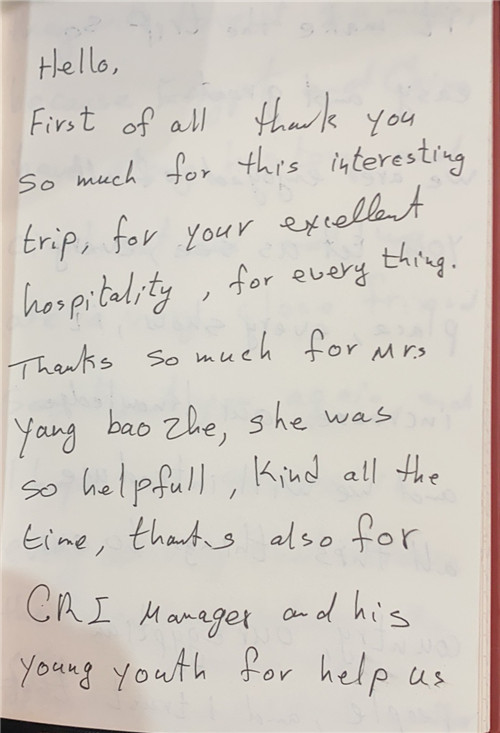 Hello,
First of all thank you
so much for this interesting
trip, for your excellent
hospitality, for every thing.
Thanks so much for Mrs
Yang bao Zhe, she was
so helpfull, Kind all the
time, thanks also for
CRI Manager and his
young youth for help us